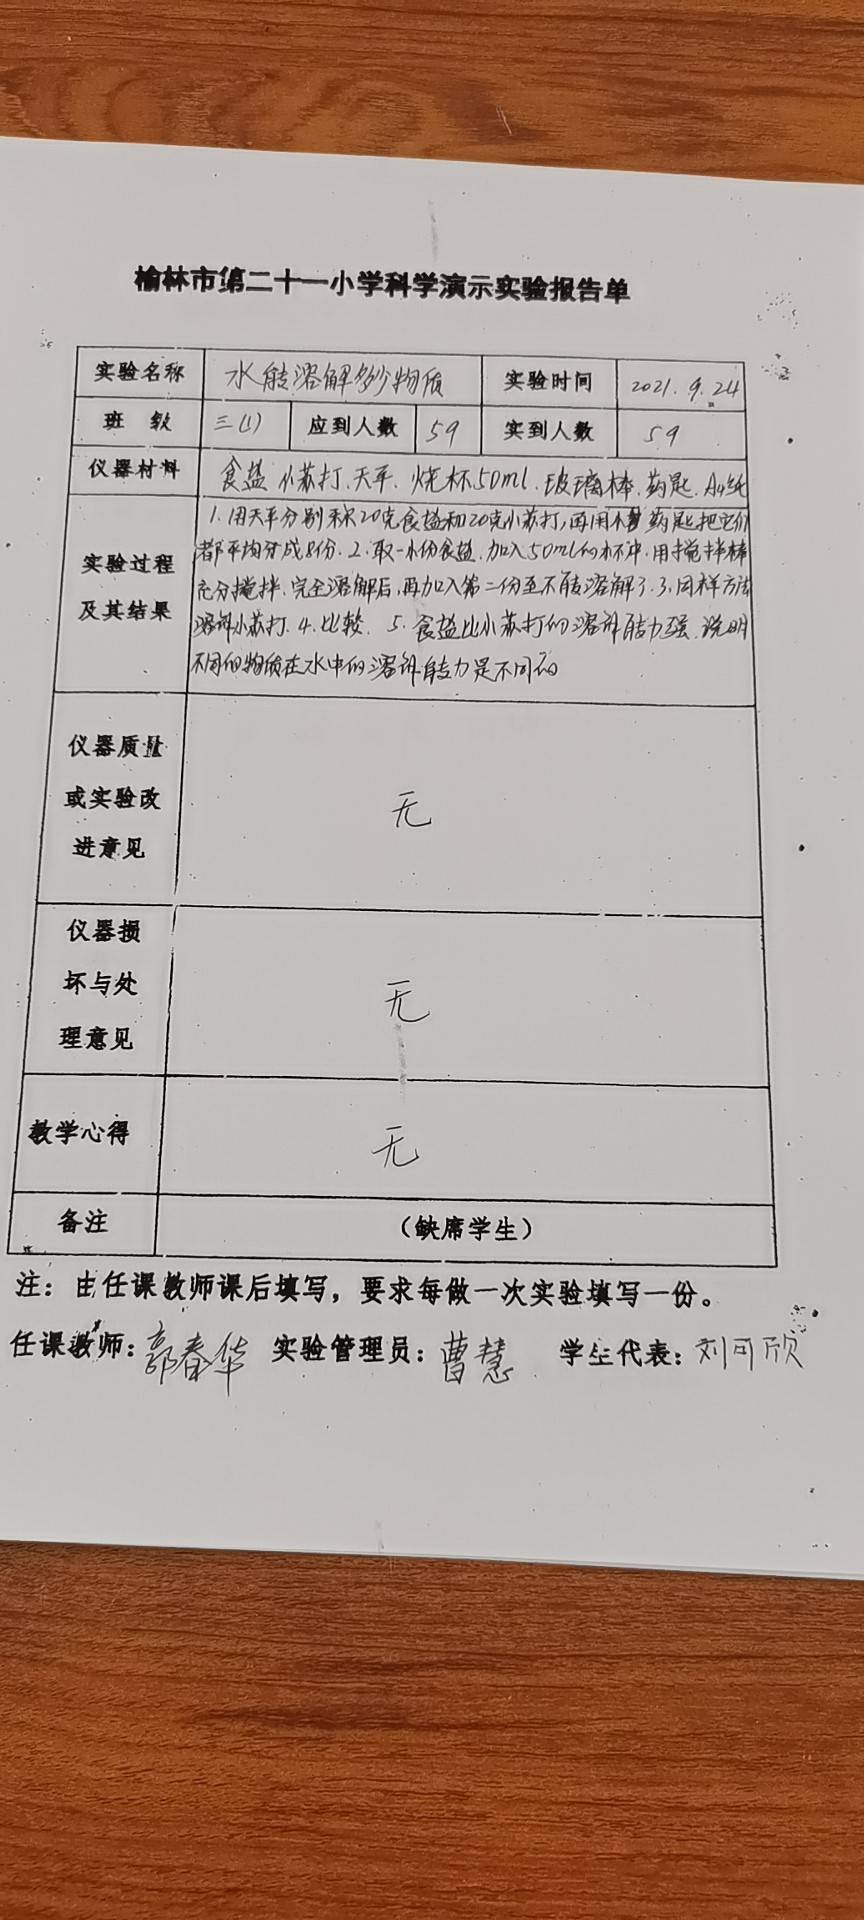 榆林市第二十一小学科学演示实验报告单
实验名称 水能溶解多少物质 实验时间 2021.9.24
班 级 三(1) 应到人数 59 实到人数 59
仪器材料 食盐 小苏打.天平.烧杯50ml.玻璃棒.药匙.A4纸
实验过程
及其结果
1.用天平分别称20克食盐和20克小苏打,再用小药匙把它们
都平均分成8份.2.取一小份食盐.加入50ml的水杯中.用搅拌棒
充分搅拌.完全溶解后,再加入第二份至不能溶解了.3.同样方法
溶解小苏打.4.比较.5.食盐比小苏打的溶解能力强.说明
不同的物质在水中的溶解能力是不同的
仪器质量
或实验改
进意见
无
仪器损
坏与处
理意见
无
教学心得 无
备注 (缺席学生)
注：由任课教师课后填写，要求每做一次实验填写一份。
任课教师：郭春华 实验管理员：曹慧 学生代表：刘可欣